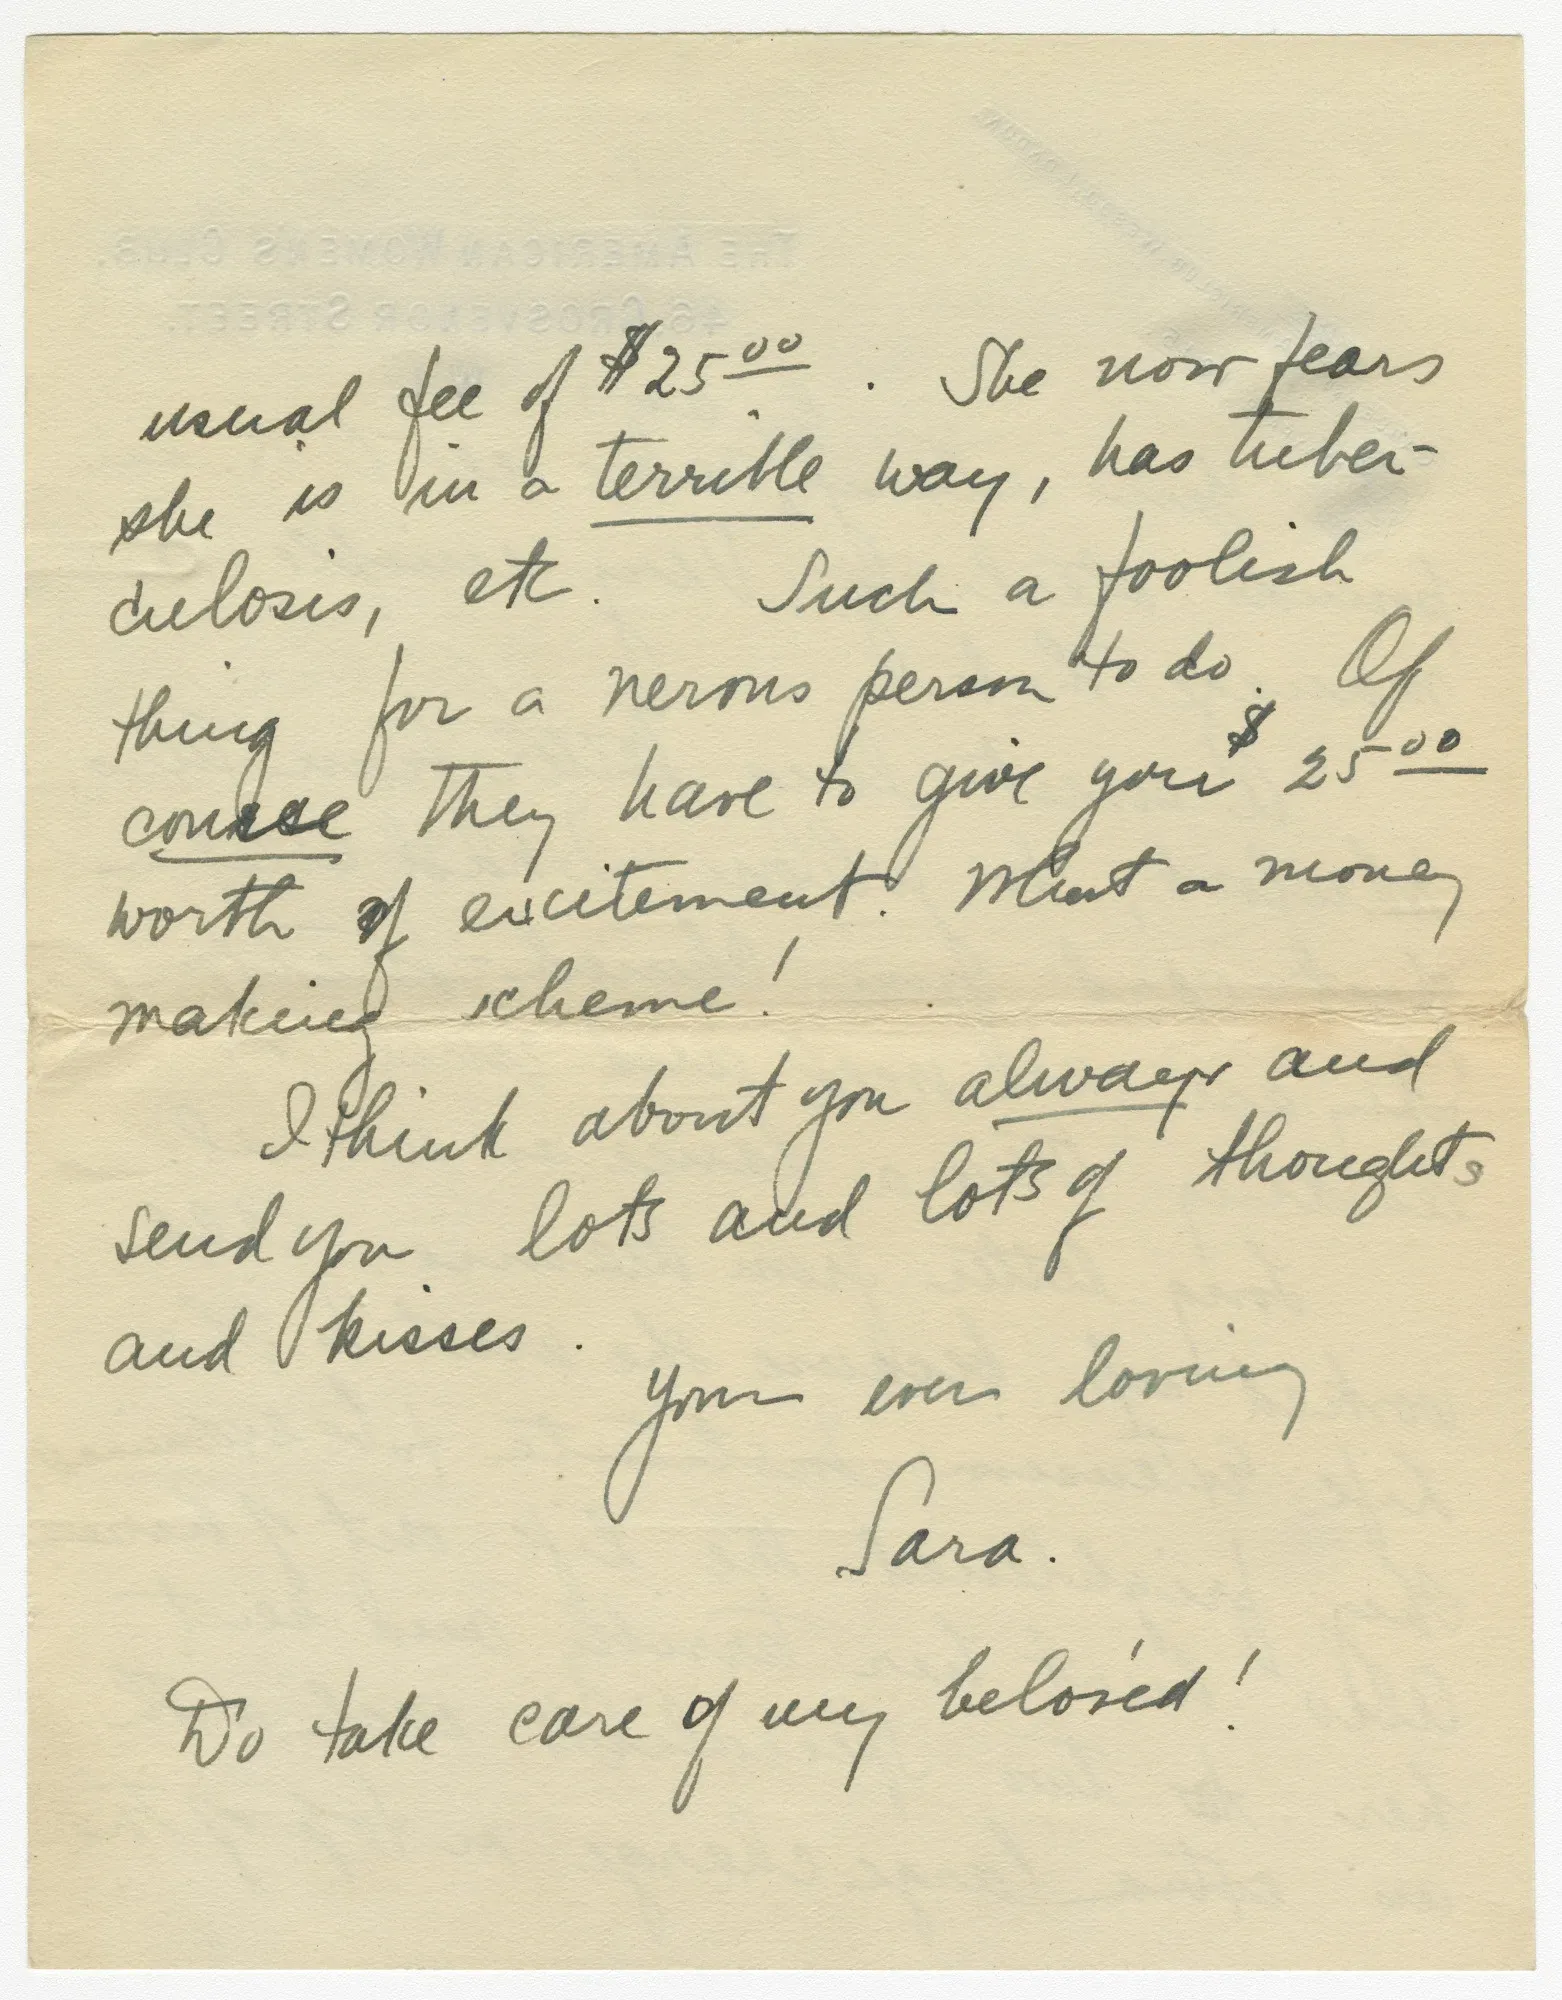 THE AMERICAN WOMEN'S CLUB.
46 GROSVENOR STREET.
usual fee of $25.00. She now fears
she is in a terrible way, has tuber-
culosis, etc. Such a foolish
thing for a nerous person to do. Of
course they have to give you $25.00
worth of excitement. What a money
making scheme!
I think about you always and
send you lots and lots of thoughts
and kisses.
Your ever loving
Sara.
Do take care of my beloved!